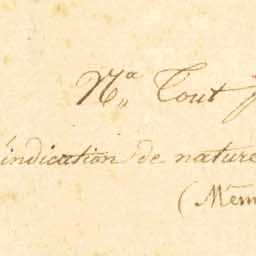 Nª Tout
indication de nature
(Mém